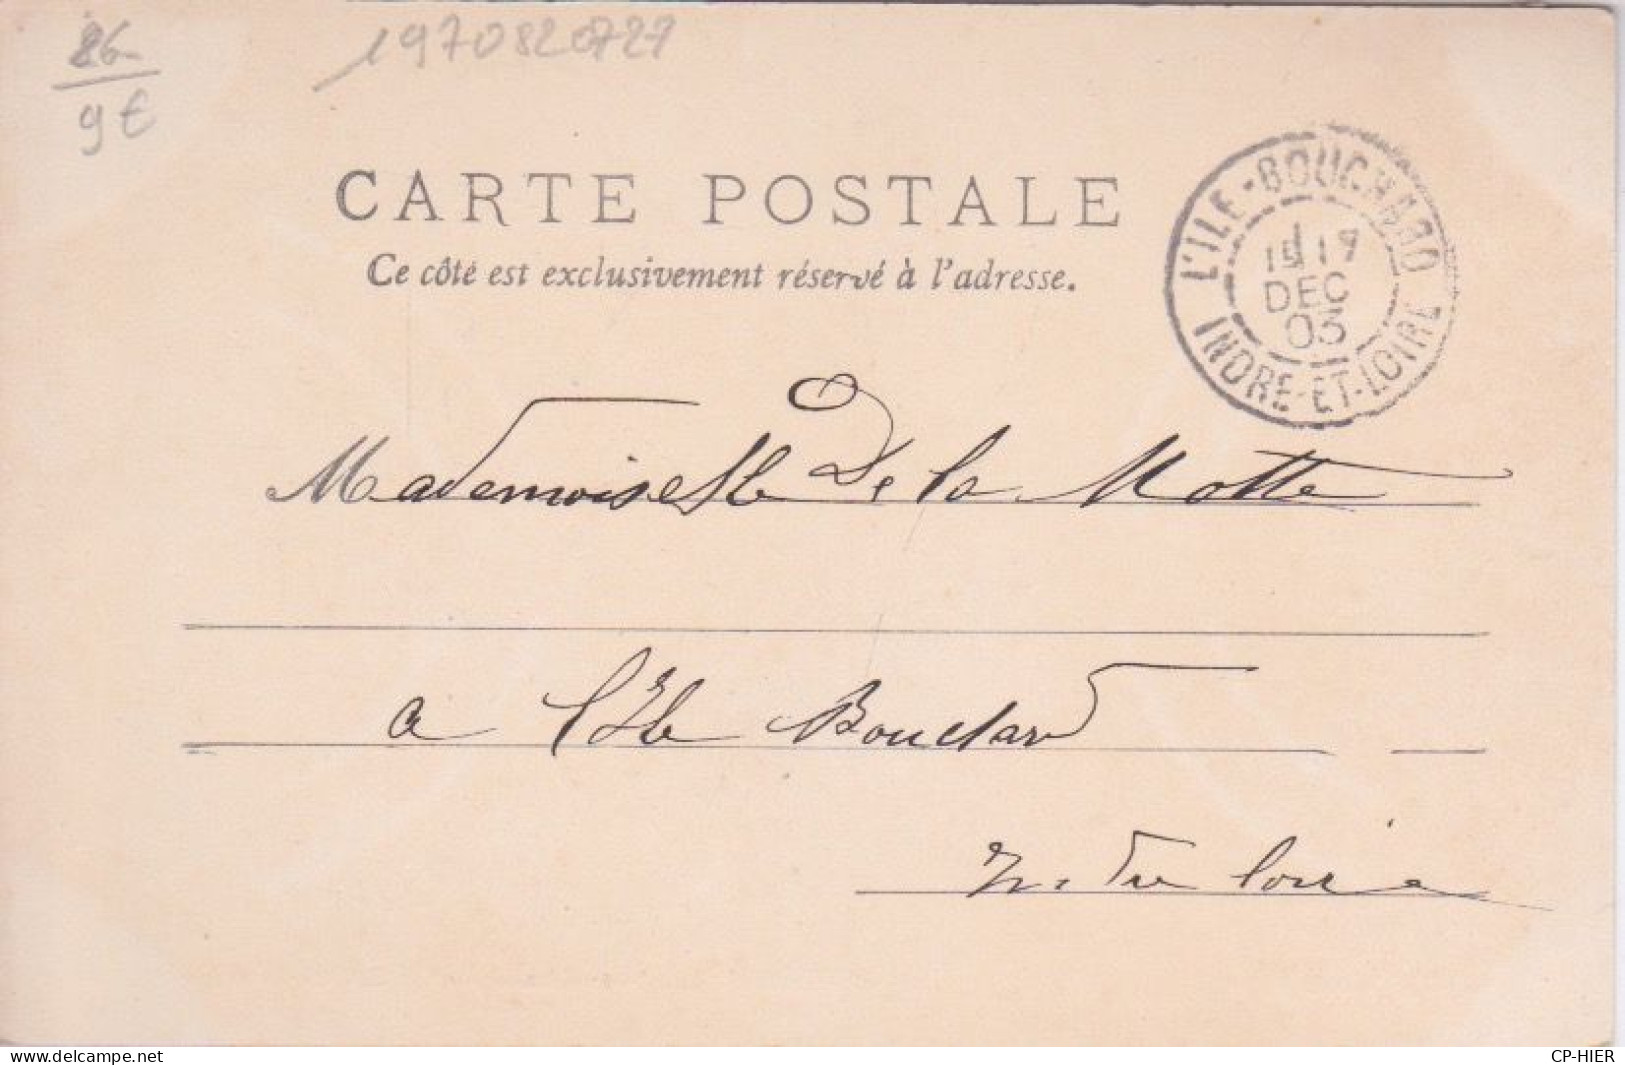 86
9€
1970820727
CARTE POSTALE
Ce côté est exclusivement réservé à l'adresse.
L'ILE-BOUCHARD
DEC
03
INDRE-ET-LOIRE
Mademoiselle De la Motte
a l'Ile Bouchard
Loire
www.delcampe.net
CP-HIER